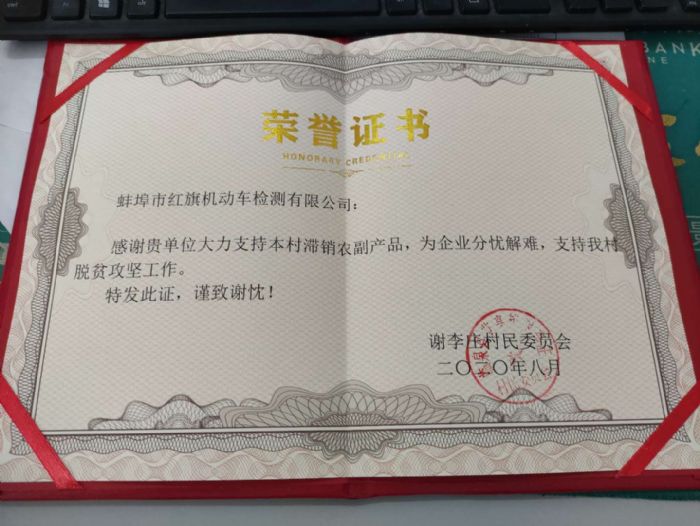 荣誉证书
HONORARY CREDENTIAL
蚌埠市红旗机动车检测有限公司:
感谢贵单位大力支持本村滞销农副产品,为企业分忧解难,支持我村
脱贫攻坚工作。
特发此证,谨致谢忱!
谢李庄村民委员会
二〇二〇年八月
BANK